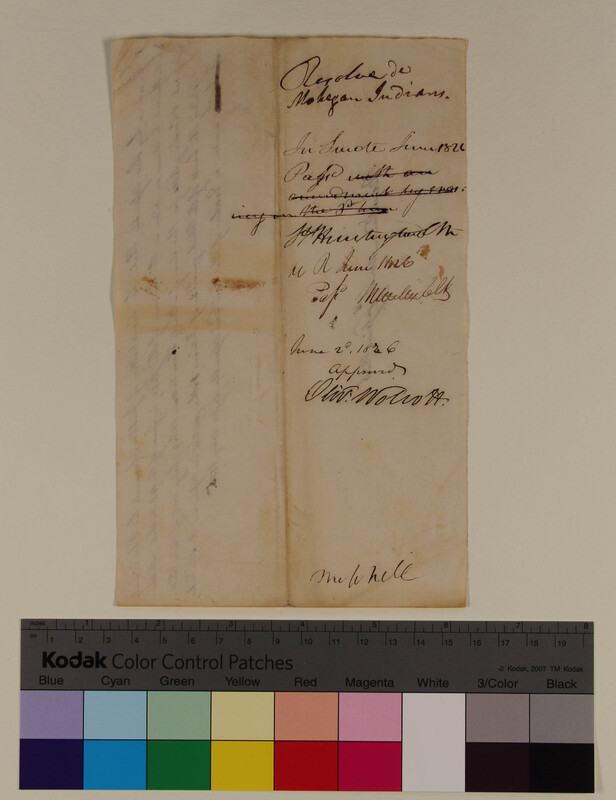 Resolve de
Mohegan Indians.
In Senate June 1826
Pass'd with an
amendment by eras-
ing in the 3d line
Huntington Clk
H R June 1826
Pass'd
Clk
June 2d. 1826
Approved
Oliv. Wolcott.
inches 1 2 3 4 5 6 7 8
cm 1 2 3 4 5 6 7 8 9 10 11 12 13 14 15 16 17 18 19
Kodak Color Control Patches
© Kodak, 2007 TM: Kodak
Blue Cyan Green Yellow Red Magenta White 3/Color Black